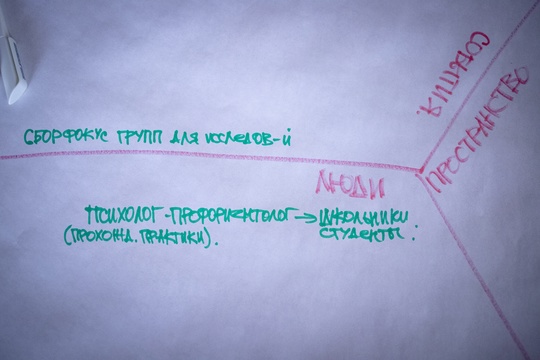 СОБЫТИЯ
ПРОСТРАНСТВО
СБОР ФОКУС ГРУПП ДЛЯ ИССЛЕДОВ-Й
ЛЮДИ
ПСИХОЛОГ-ПРОФОРИЕНТОЛОГ → ШКОЛЬНИКИ
(ПРОХОЖД. ПРАКТИКИ). СТУДЕНТЫ :